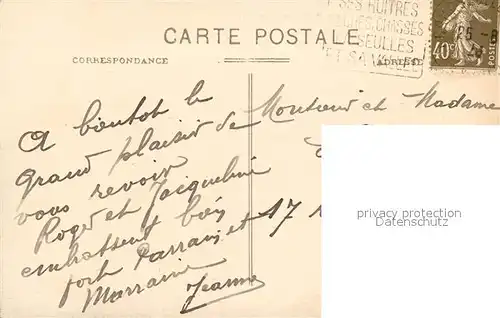 SES HUITRES
CHASSES
SEULLES
ET SA
CARTE POSTALE
40c
POSTES
CORRESPONDANCE
ADRESSE
A bientot le
grand plaisir de
vous revoir
Roger et Jacqueline
embrassent bien
fort Parrain et
Marraine
Jeanne
Monsieur et Madame
17
privacy protection
Datenschutz